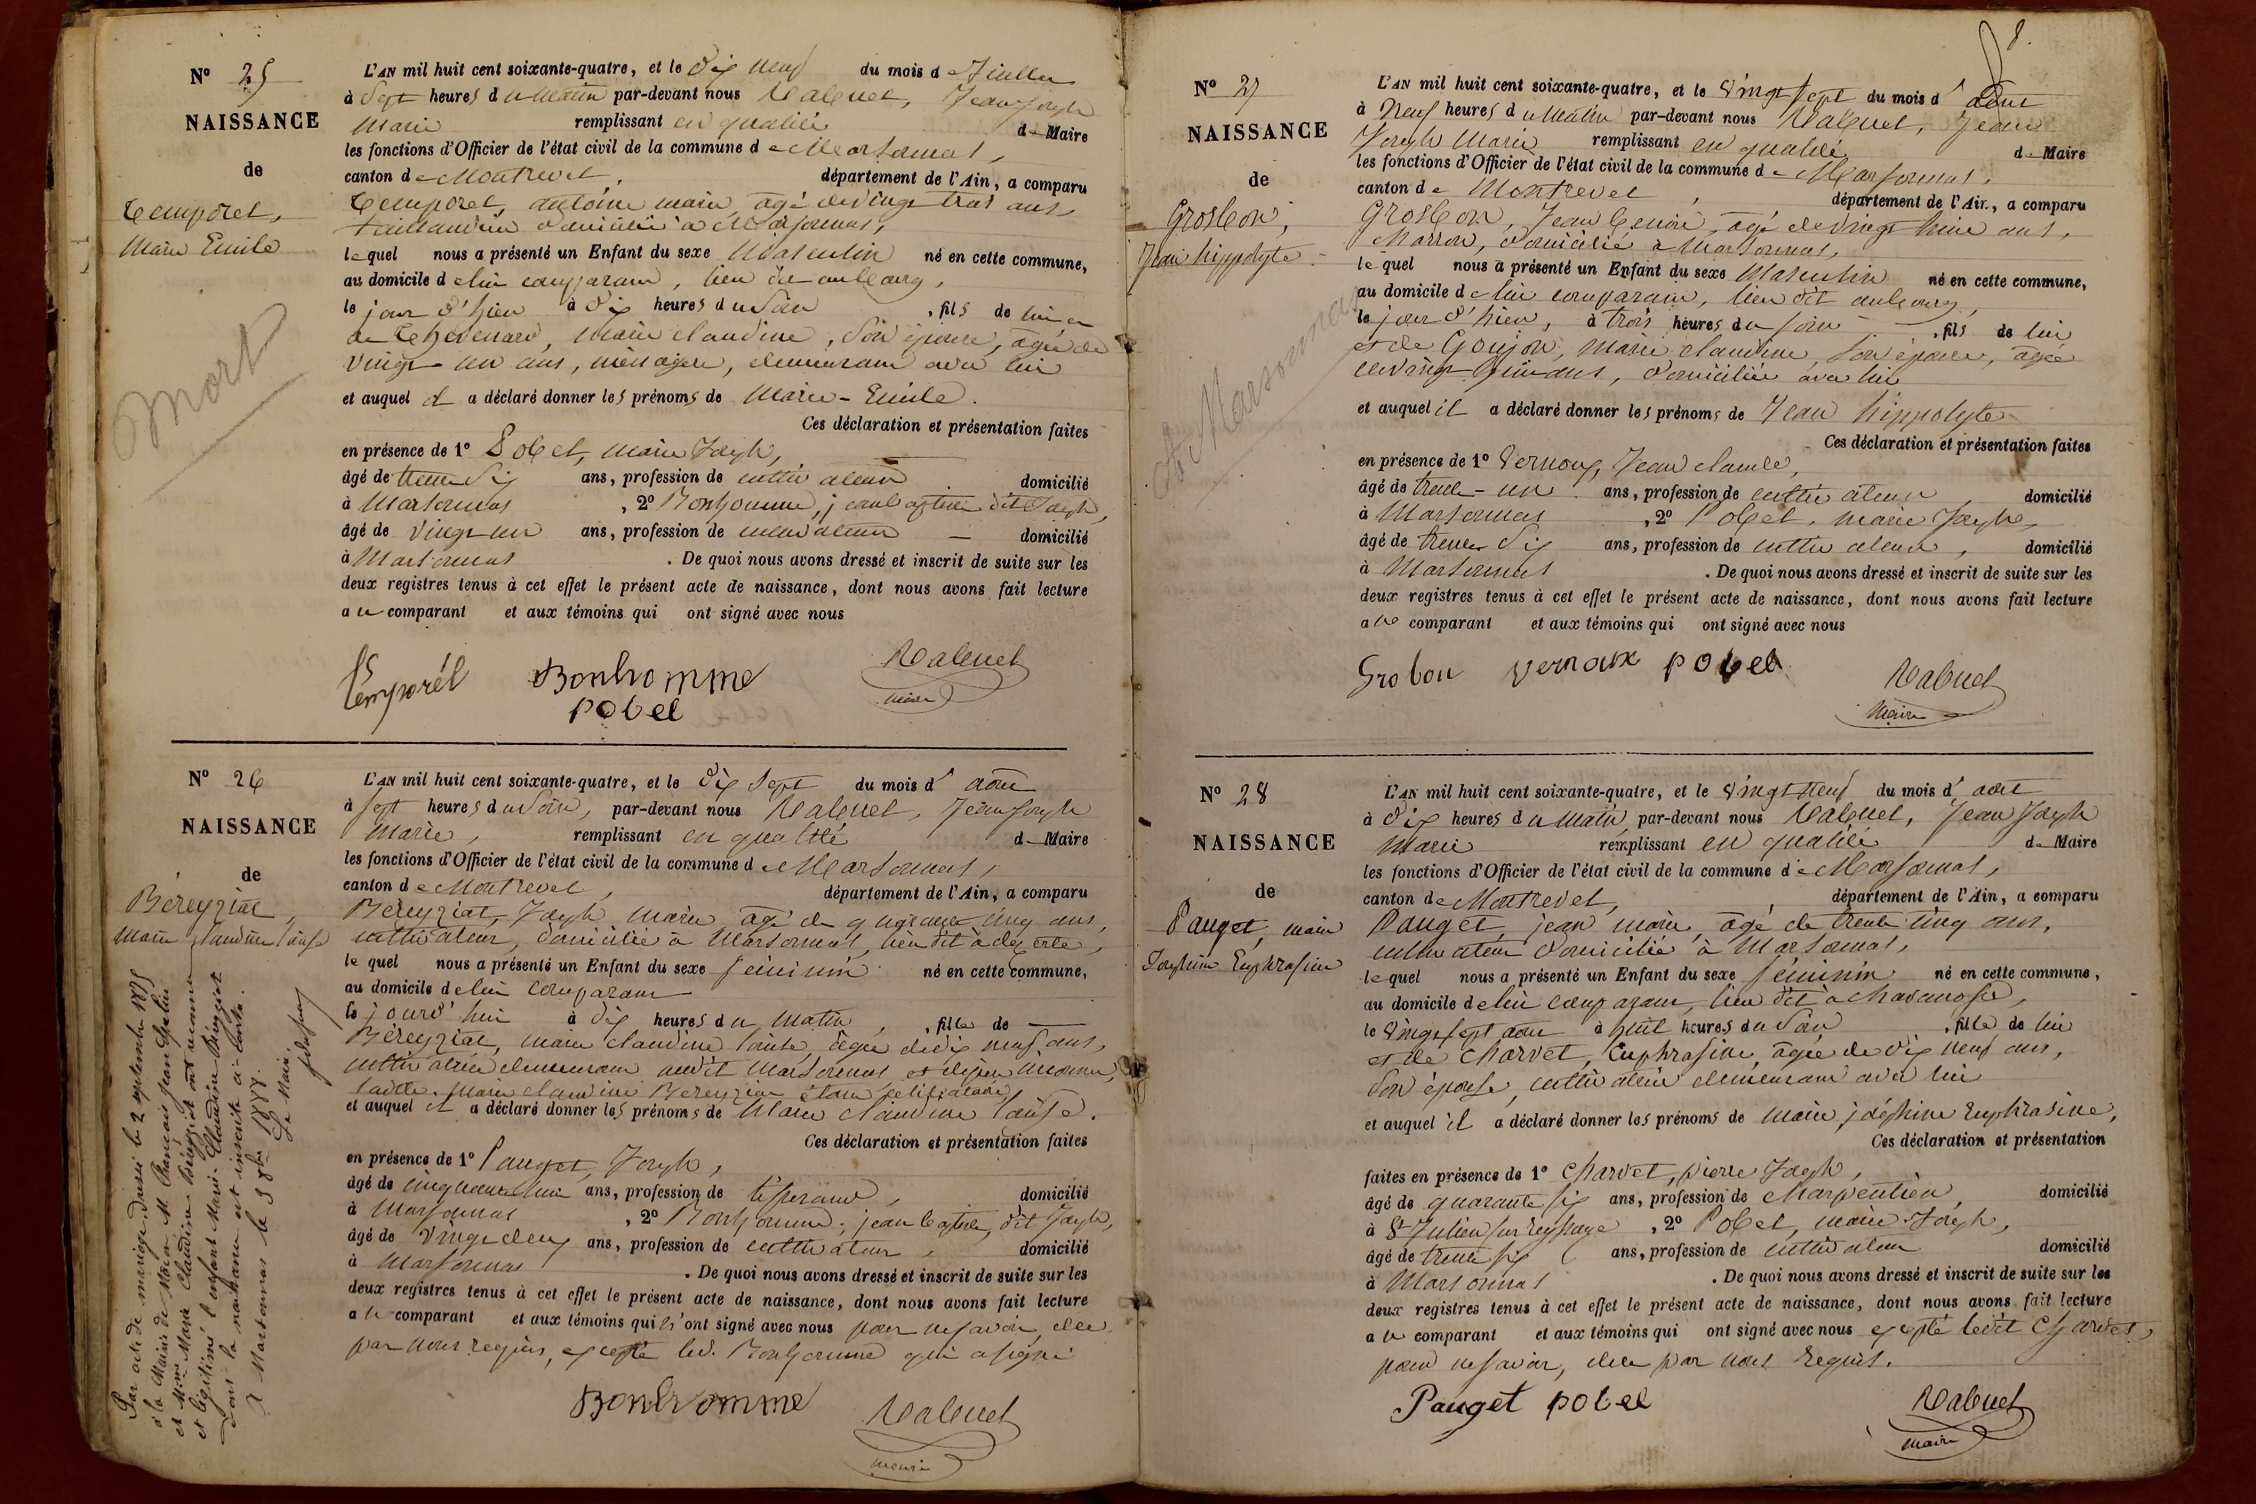 N° 25
NAISSANCE
de
Temporet,
Marie Emile
Mort
L'AN mil huit cent soixante-quatre, et le dix neuf du mois de Juillet
à Sept heures du Matin par-devant nous Rabuel, Jean Joseph
Marie remplissant en qualité de Maire
les fonctions d'Officier de l'état civil de la commune de Marsonnas,
canton de Montrevel, département de l'Ain, a comparu
Temporet, antoine marie, âgé de vingt trois ans,
taillandier domicilié à Marsonnas,
lequel nous a présenté un Enfant du sexe Masculin né en cette commune,
au domicile de lui comparant, lieu dit au bourg,
le jour d'hier à dix heures du Soir, fils de lui et
de Thevenard, Marie claudine, son épouse, âgée de
vingt un ans, ménagère, demeurant avec lui
et auquel il a déclaré donner les prénoms de Marie-Emile.
Ces déclaration et présentation faites
en présence de 1° Pobel, Marie Joseph,
âgé de trente Six ans, profession de cultivateur domicilié
à Marsonnas, 2° Bonhomme, jean baptiste dit Joseph,
âgé de vingt un ans, profession de cultivateur domicilié
à Marsonnas. De quoi nous avons dressé et inscrit de suite sur les
deux registres tenus à cet effet le présent acte de naissance, dont nous avons fait lecture
au comparant et aux témoins qui ont signé avec nous
Temporél Bonhomme Rabuel
pobel maire
N° 26
NAISSANCE
de
Béreyziat,
Marie claudine Louise
Par acte de mariage dressé le 2 septembre 1875
à la Mairie de Mâcon M. François Jean
et Mme Marie Claudine Béreyziat ont reconnu
et légitimé l'enfant Marie Claudine Béreyziat
dont la naissance est inscrite ci-contre.
A Marsonnas le 5 8bre 1877.
Le Maire.
L'AN mil huit cent soixante-quatre, et le dix Sept du mois d'août
à sept heures du Soir, par-devant nous Rabuel, Jean Joseph
Marie, remplissant en qualité de Maire
les fonctions d'Officier de l'état civil de la commune de Marsonnas,
canton de Montrevel, département de l'Ain, a comparu
Béreyziat, Joseph Marie âgé de quarante cinq ans,
cultivateur, domicilié à Marsonnas, lieu dit
lequel nous a présenté un Enfant du sexe féminin né en cette commune,
au domicile de lui comparant
le jourd'hui à dix heures du matin, fille de
Béreyziat, marie claudine Louise, âgée de dix neuf ans,
cultivatrice demeurant audit Marsonnas et de père inconnu,
ladite Marie claudine Béreyziat étant célibataire,
et auquel il a déclaré donner les prénoms de Marie claudine Louise.
Ces déclaration et présentation faites
en présence de 1° Pauget, Joseph,
âgé de cinquante huit ans, profession de tisserand, domicilié
à Marsonnas, 2° Bonhomme, jean baptiste, dit Joseph,
âgé de vingt deux ans, profession de cultivateur, domicilié
à Marsonnas. De quoi nous avons dressé et inscrit de suite sur les
deux registres tenus à cet effet le présent acte de naissance, dont nous avons fait lecture
au comparant et aux témoins qui n'ont signé avec nous pour ne savoir, de ce
par nous requis, excepté led. Bonhomme qui a signé
Bonhomme Rabuel
maire
8.
N° 27
NAISSANCE
de
Grosbon,
Jean hippolyte
à Marsonnas
L'AN mil huit cent soixante-quatre, et le vingt sept du mois d'août
à Neuf heures du Matin par-devant nous Rabuel, Jean
Joseph Marie remplissant en qualité de Maire
les fonctions d'Officier de l'état civil de la commune de Marsonnas,
canton de Montrevel, département de l'Ain, a comparu
Grosbon, Jean Benoit, âgé de vingt huit ans,
charron, domicilié à Marsonnas,
lequel nous a présenté un Enfant du sexe Masculin né en cette commune,
au domicile de lui comparant, lieu dit au bourg,
le jour d'hier, à trois heures du soir, fils de lui
et de Goujon, marie claudine, son épouse, âgée
de vingt ans, domiciliée avec lui
et auquel il a déclaré donner les prénoms de Jean hippolyte
Ces déclaration et présentation faites
en présence de 1° Vernoux, Jean claude,
âgé de trente-un ans, profession de cultivateur, domicilié
à Marsonnas, 2° Pobel, marie Joseph,
âgé de trente Six ans, profession de cultivateur, domicilié
à Marsonnas. De quoi nous avons dressé et inscrit de suite sur les
deux registres tenus à cet effet le présent acte de naissance, dont nous avons fait lecture
au comparant et aux témoins qui ont signé avec nous
Grobon vernoux pobel Rabuel
Maire
N° 28
NAISSANCE
de
Pauget, marie
Joséphine Euphrasine
L'AN mil huit cent soixante-quatre, et le vingt Neuf du mois d'août
à dix heures du Matin par-devant nous Rabuel, Jean Joseph
Marie remplissant en qualité de Maire
les fonctions d'Officier de l'état civil de la commune de Marsonnas,
canton de Montrevel, département de l'Ain, a comparu
Pauget, jean marie, âgé de trente cinq ans,
cultivateur domicilié à Marsonnas,
lequel nous a présenté un Enfant du sexe féminin né en cette commune,
au domicile de lui comparant, lieu dit à
le vingt sept août à huit heures du Soir, fille de lui
et de Charvet, Euphrasine âgée de dix neuf ans,
son épouse, cultivatrice demeurant avec lui
et auquel il a déclaré donner les prénoms de marie joséphine Euphrasine,
Ces déclaration et présentation
faites en présence de 1° Charvet, pierre Joseph,
âgé de quarante six ans, profession de charpentier, domicilié
à St Julien sur reyssouze, 2° Pobel, marie Joseph,
âgé de trente six ans, profession de cultivateur domicilié
à Marsonnas. De quoi nous avons dressé et inscrit de suite sur les
deux registres tenus à cet effet le présent acte de naissance, dont nous avons fait lecture
au comparant et aux témoins qui ont signé avec nous excepté ledit Charvet,
pour ne savoir, de ce par nous requis.
Pauget pobel Rabuel
maire